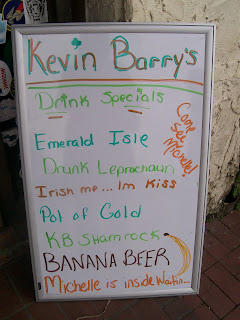 Kevin Barry's
Drink Specials
Come
See
Michelle!
Emerald Isle
Drunk Leprechaun
Irish me... Im Kiss
Pot of Gold
KB Shamrock
BANANA BEER
Michelle is inside Waitin...